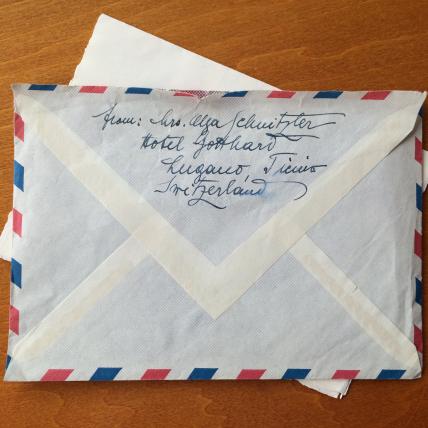 from: Mrs. Olga Schnitzler
Hotel Gotthard
Lugano, Ticino
Switzerland